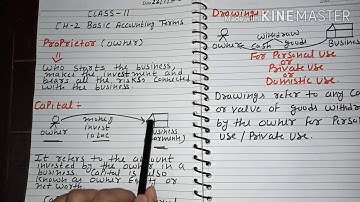 CLASS-11
CH-2 Basic Accounting Terms
Proprietor (owner)
Who starts the business,
makes the investment and
bears all the risks connected
with the business.
Capital :
money
invest
10 Lac
owner
Business
It refers to the amount
invested by the owner in a
Business. Capital is also
known as owner Equity or
net worth.
Drawings
Made with
KINEMASTER
withdraw
owner
cash
goods
Business
For Personal Use
or
Private Use
or
Domestic Use.
Drawings refer to any
or value of goods
by the owner for
use / Private use.